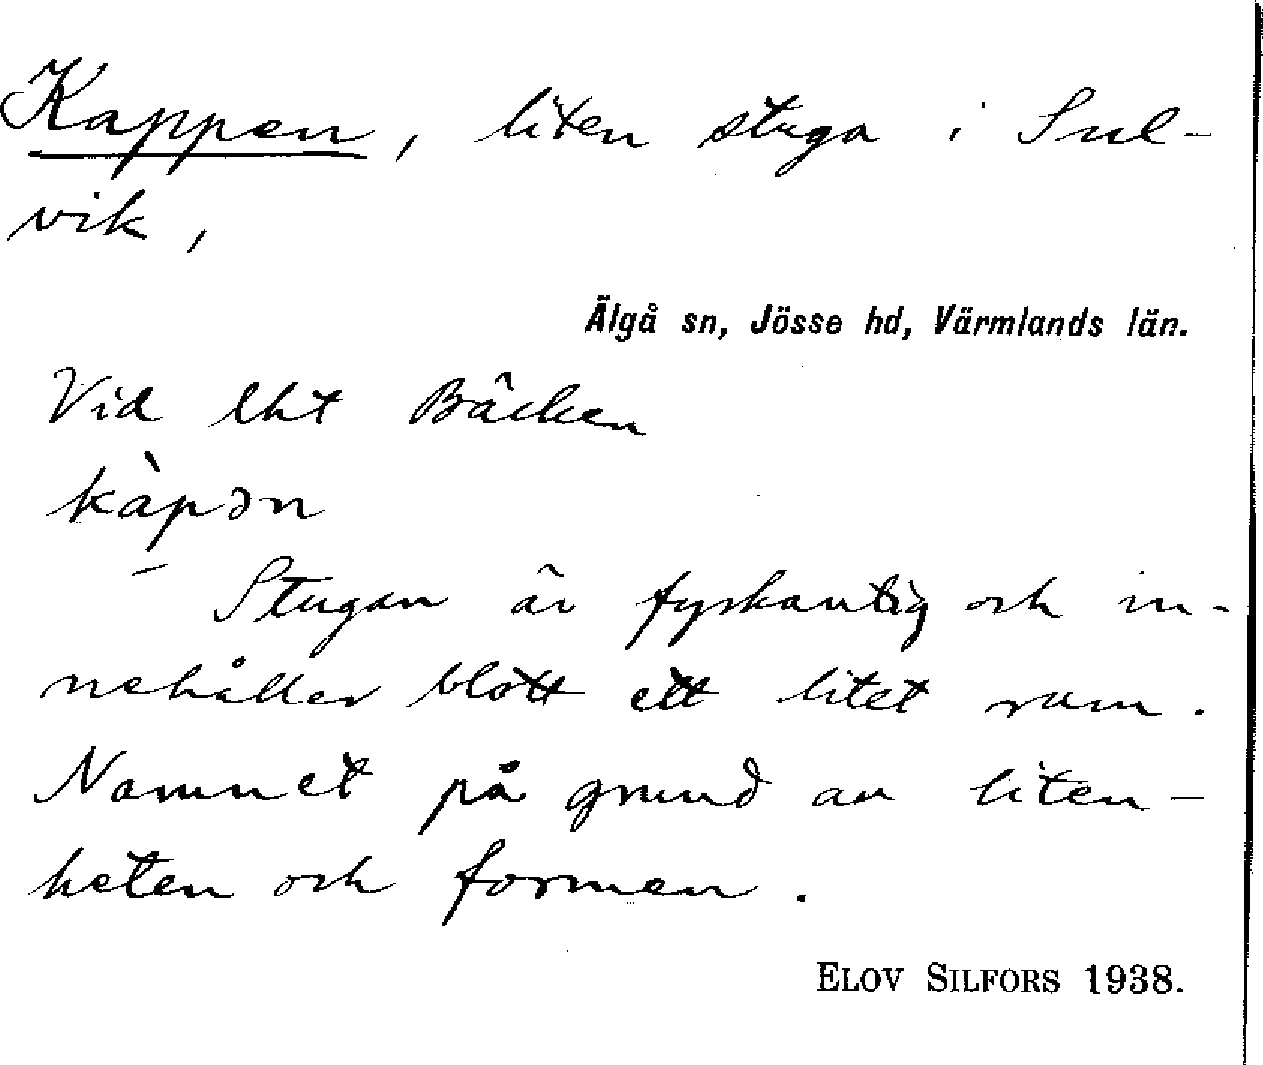 Kappen, liten stuga i Sul-
vik,
Älgå sn, Jösse hd, Värmlands län.
Vid lht Bäcken
kàpən
Stugan är fyrkantig och in-
nehåller blott ett litet rum.
Namnet på grund av liten-
heten och formen.
ELOV SILFORS 1938.